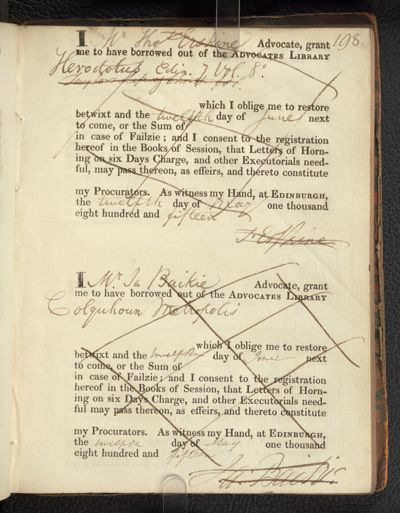 198
I Mr Tho. Erskine Advocate, grant
me to have borrowed out of the ADVOCATES LIBRARY
Herodotus Edin. 7 vols. 8o.
which I oblige me to restore
betwixt and the twelfth day of June next
to come, or the Sum of
in case of Failzie; and I consent to the registration
hereof in the Books of Session, that Letters of Horn-
ing on six Days Charge, and other Executorials need-
ful, may pass thereon, as effeirs, and thereto constitute
my Procurators. As witness my Hand, at EDINBURGH,
the twelfth day of May one thousand
eight hundred and fifteen
T. Erskine
I Mr Ja Baikie Advocate, grant
me to have borrowed out of the ADVOCATES LIBRARY
Colquhoun Metropolis
which I oblige me to restore
betwixt and the twelfth day of June next
to come, or the Sum of
in case of Failzie; and I consent to the registration
hereof in the Books of Session, that Letters of Horn-
ing on six Days Charge, and other Executorials need-
ful may pass thereon, as effeirs, and thereto constitute
my Procurators. As witness my Hand, at EDINBURGH,
the twelfth day of May one thousand
eight hundred and fifteen
Baikie